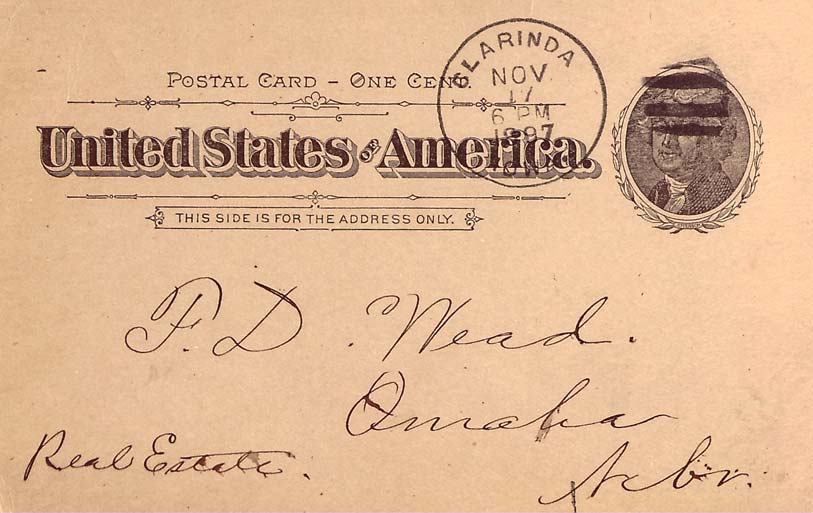 POSTAL CARD – ONE CENT.
CLARINDA
NOV
17
6 PM
1897
IOWA
United States OF America.
THIS SIDE IS FOR THE ADDRESS ONLY.
F. D. Wead.
Omaha
Real Estate.
Nebr.